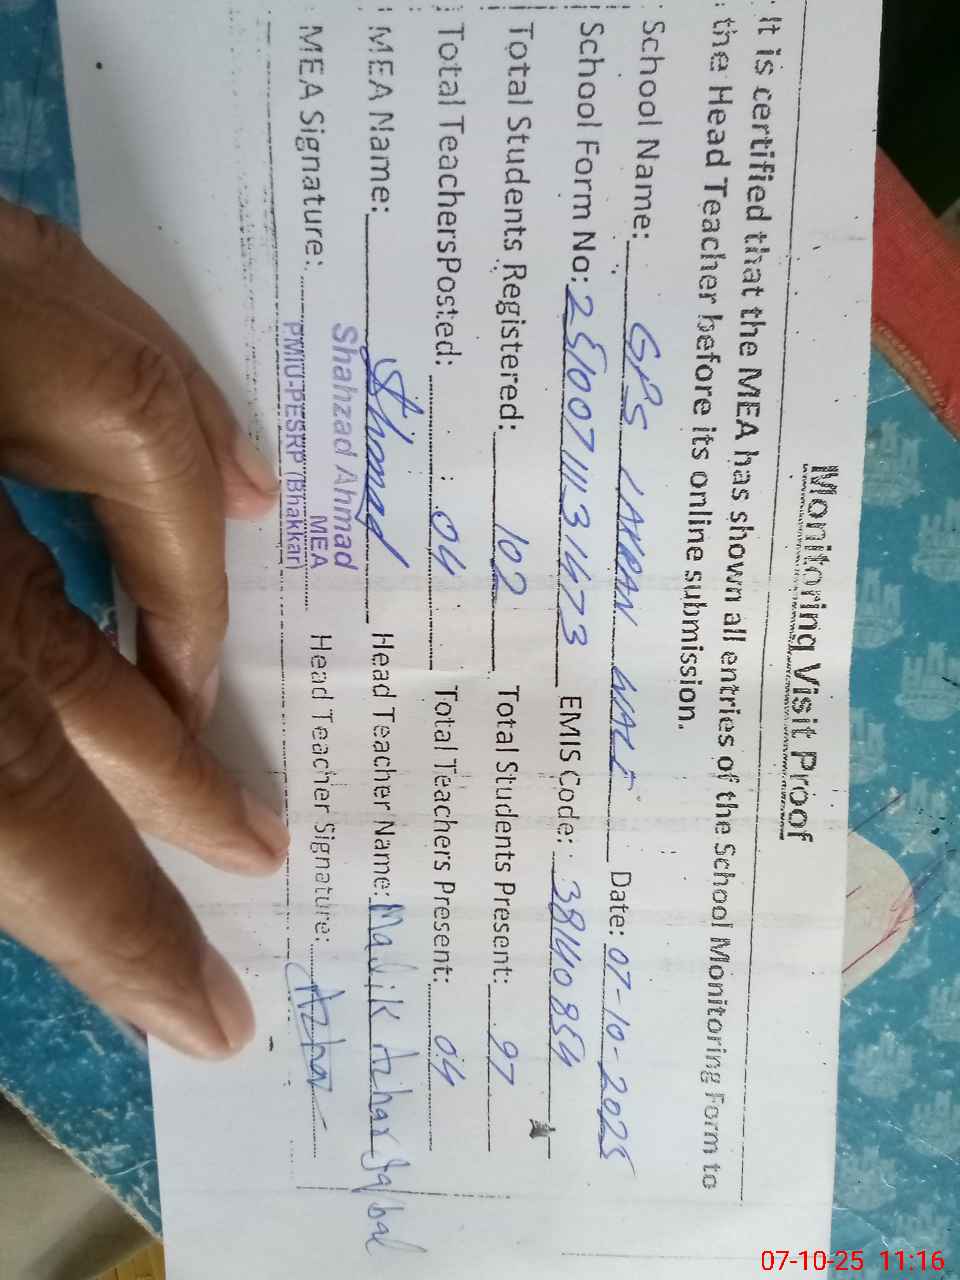 Monitoring Visit Proof
It is certified that the MEA has shown all entries of the School Monitoring Form to
the Head Teacher before its online submission.
School Name: GPS LAKPAN WALI Date: 07-10-2025
School Form No: 25100711131473 EMIS Code: 38140854
Total Students Registered: 102 Total Students Present: 97
Total TeachersPosted: 04 Total Teachers Present: 04
MEA Name: Ahmad Head Teacher Name: Malik Azhar Iqbal
MEA Signature: Shahzad Ahmad Head Teacher Signature: Azhar
MEA
PMIU-PESRP (Bhakkar)
07-10-25 11:16